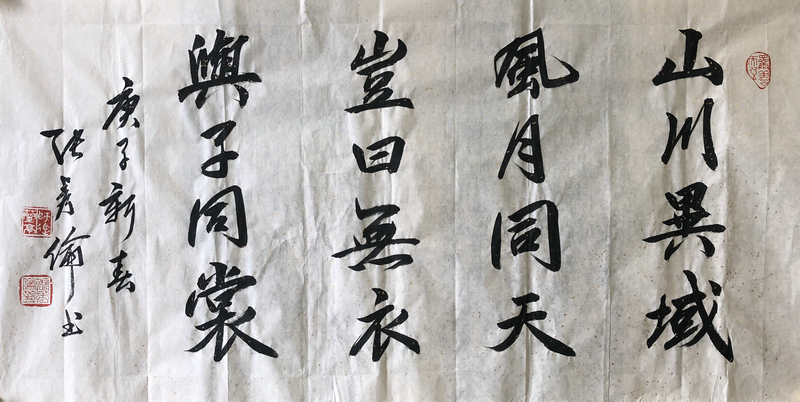 山川異域
風月同天
豈曰無衣
與子同裳
庚子新春
張秀倫书